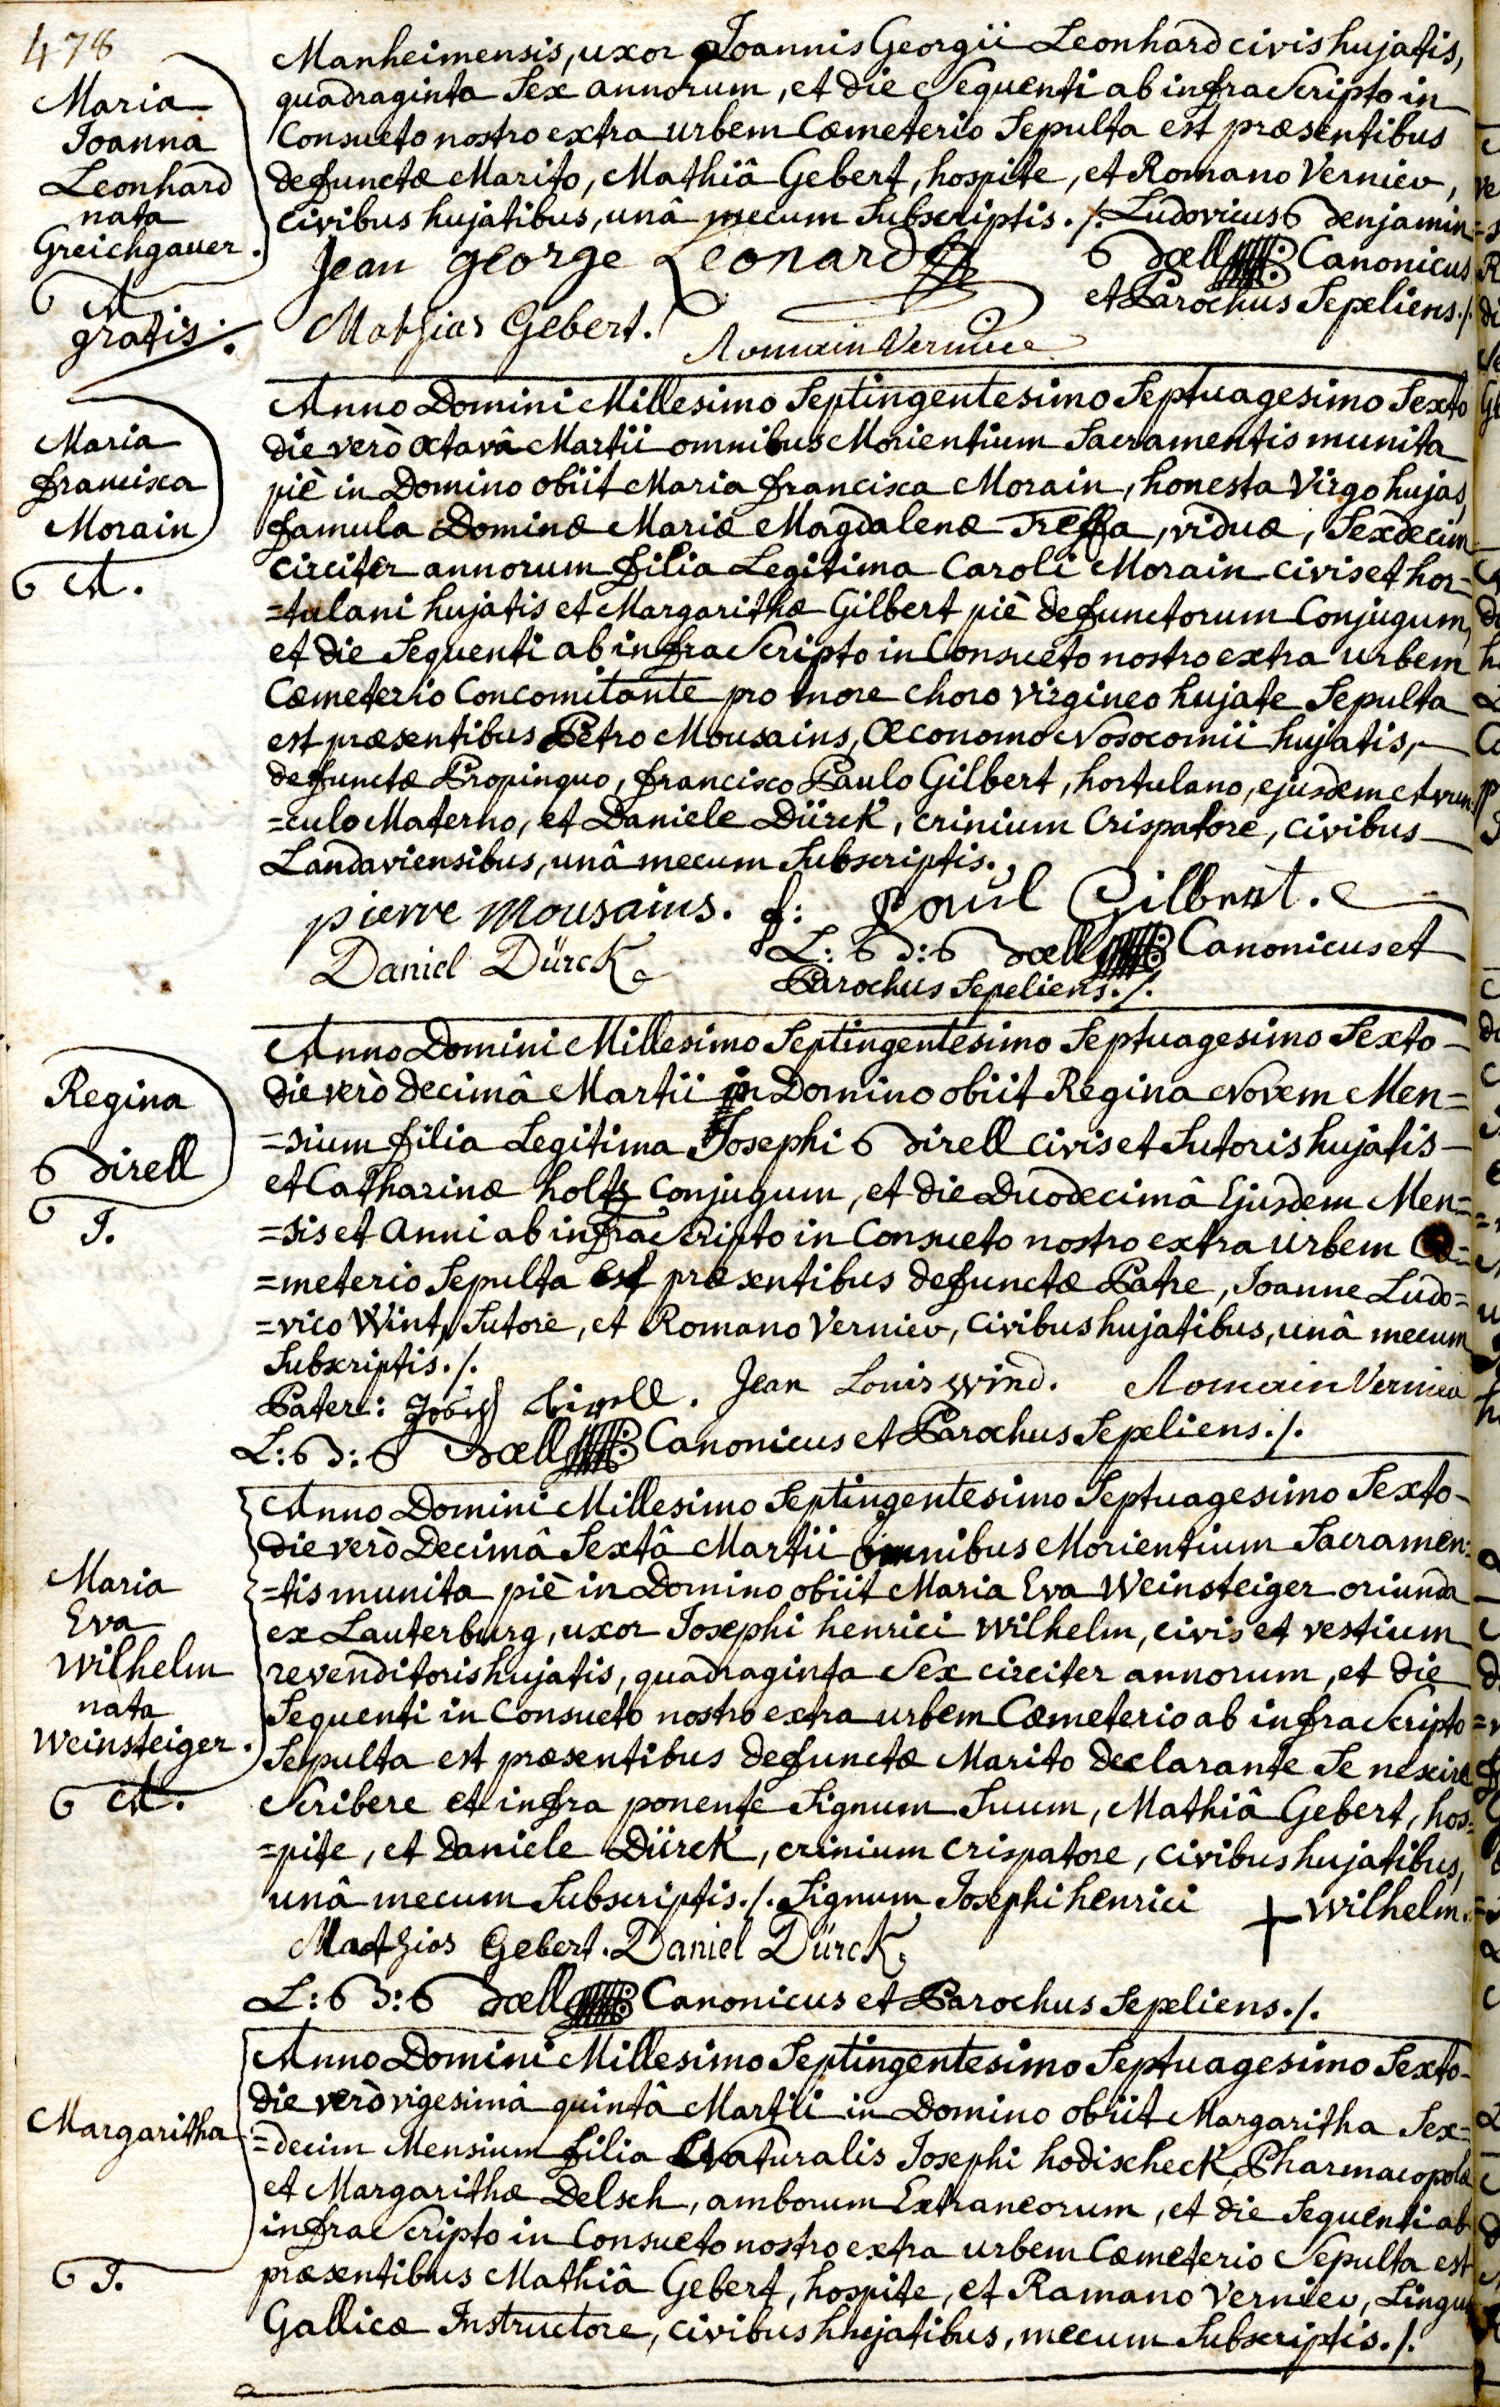 478
Maria
Joanna
Leonhard
nata
Greichgauer.
A
gratis ./.
Manheimensis, uxor Joannis Georgii Leonhard civis hujatis,
quadraginta Sex annorum, et die Sequenti ab infra Scripto in
Consueto nostro extra urbem Cœmeterio Sepulta est præsentibus
defunctæ Marito, Mathiâ Gebert, hospite, et Romano Verniev,
civibus hujatibus, unâ mecum Subscriptis ./. Ludovicus Benjamin
Jean george Leonard
Böell Canonicus
et Parochus Sepeliens ./.
Mathias Gebert.
Romain Verniev
Maria
francisca
Morain
A.
Anno Domini Millesimo Septingentesimo Septuagesimo Sexto
die verò octavâ Martii omnibus Morientium Sacramentis munita
piè in Domino obiit Maria francisca Morain, honesta Virgo hujas,
famula Dominæ Mariæ Magdalenæ Treffa, viduæ, Sexdecim
circiter annorum filia Legitima Caroli Morain civis et hor=
=tulani hujatis et Margarithæ Gilbert piè defunctorum Conjugum,
et die Sequenti ab infra Scripto in Consueto nostro extra urbem
Cœmeterio Concomitante pro more choro virgineo hujate Sepulta
est præsentibus Petro Mousains, Œconomo Nosocomii hujatis,
defunctæ Propinquo, francisco Paulo Gilbert, hortulano, ejusdem Avun
=culo Materno, et Daniele Dürck, crinium Crispatore, civibus
Landaviensibus, unâ mecum Subscriptis.,
pierre Mousains. f: Poul Gilbert.
Daniel Dürck
L: B: Böell Canonicus et
Parochus Sepeliens ./.
Regina
Birell
J.
Anno Domini Millesimo Septingentesimo Septuagesimo Sexto
die verò decimâ Martii in Domino obiit Regina Novem Men=
=sium filia Legitima Josephi Birell civis et Sutoris hujatis
et Catharinæ holtz Conjugum, et die Duodecimâ Ejusdem Men=
=sis et Anni ab infra Scripto in Consueto nostro extra urbem Cœ=
=meterio Sepulta est præsentibus defunctæ Patre, Joanne Ludo=
=vico Wint, Sutore, et Romano Verniev, civibus hujatibus, unâ mecum
Subscriptis ./.
Pater: Joseph birell. Jean Louis wind. Romain Verniev
L: B: Böell Canonicus et Parochus Sepeliens ./.
Maria
Eva
Wilhelm
nata
Weinsteiger.
A.
Anno Domini Millesimo Septingentesimo Septuagesimo Sexto
die verò Decimâ Sextâ Martii omnibus Morientium Sacramen=
=tis munita piè in Domino obiit Maria Eva Weinsteiger oriunda
ex Lauterburg, uxor Josephi henrici Wilhelm, civis et vestium
revenditoris hujatis, quadraginta Sex circiter annorum, et die
Sequenti in Consueto nostro extra urbem Cœmeterio ab infra Scripto
Sepulta est præsentibus defunctæ Marito declarante Se nescire
Scribere et infra ponente Signum Suum, Mathiâ Gebert, hos=
=pite, et Daniele Dürck, crinium crispatore, civibus hujatibus,
unâ mecum Subscriptis ./. Signum Josephi henrici + Wilhelm.
Mathias Gebert. Daniel Dürck
L: B: Böell Canonicus et Parochus Sepeliens ./.
Margaritha
J.
Anno Domini Millesimo Septingentesimo Septuagesimo Sexto
die verò vigesimâ quintâ Martii in Domino obiit Margaritha Sex=
=decim Mensium filia Naturalis Josephi hodischeck, Pharmacopolæ
et Margarithæ Delsch, amborum Extraneorum, et die Sequenti ab
infra Scripto in Consueto nostro extra urbem Cœmeterio Sepulta est
præsentibus Mathiâ Gebert, hospite, et Ramano Verniev, Linguæ
Gallicæ Instructore, civibus hujatibus, mecum Subscriptis ./.